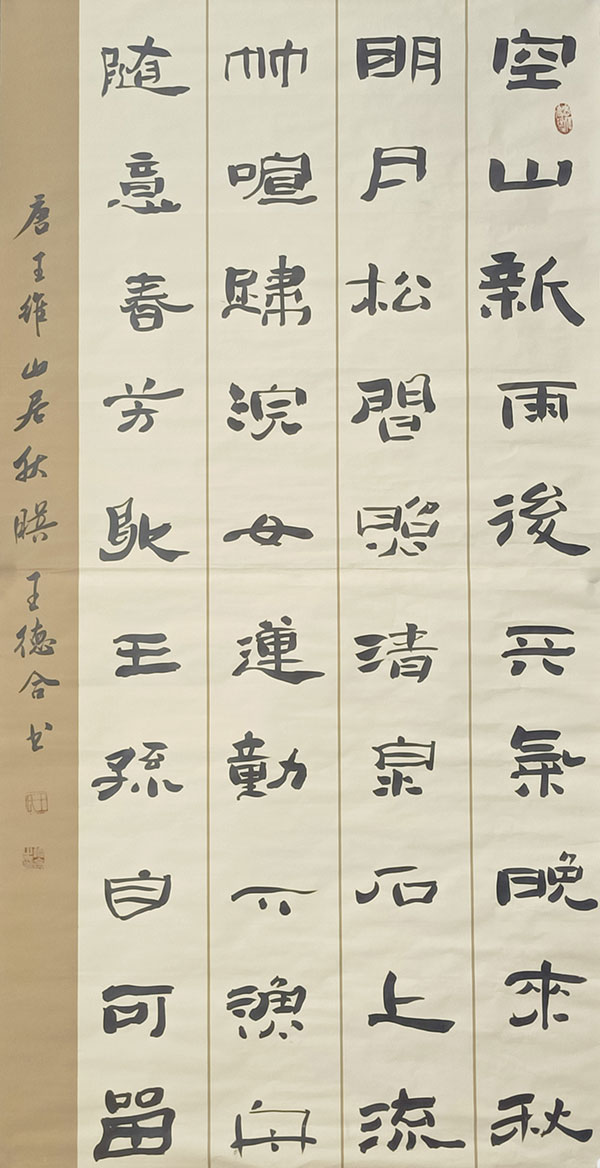 空山新雨後天氣晚來秋
明月松間照清泉石上流
竹喧歸浣女蓮動下漁舟
随意春芳歇王孫自可留
唐王維山居秋暝 王德合书